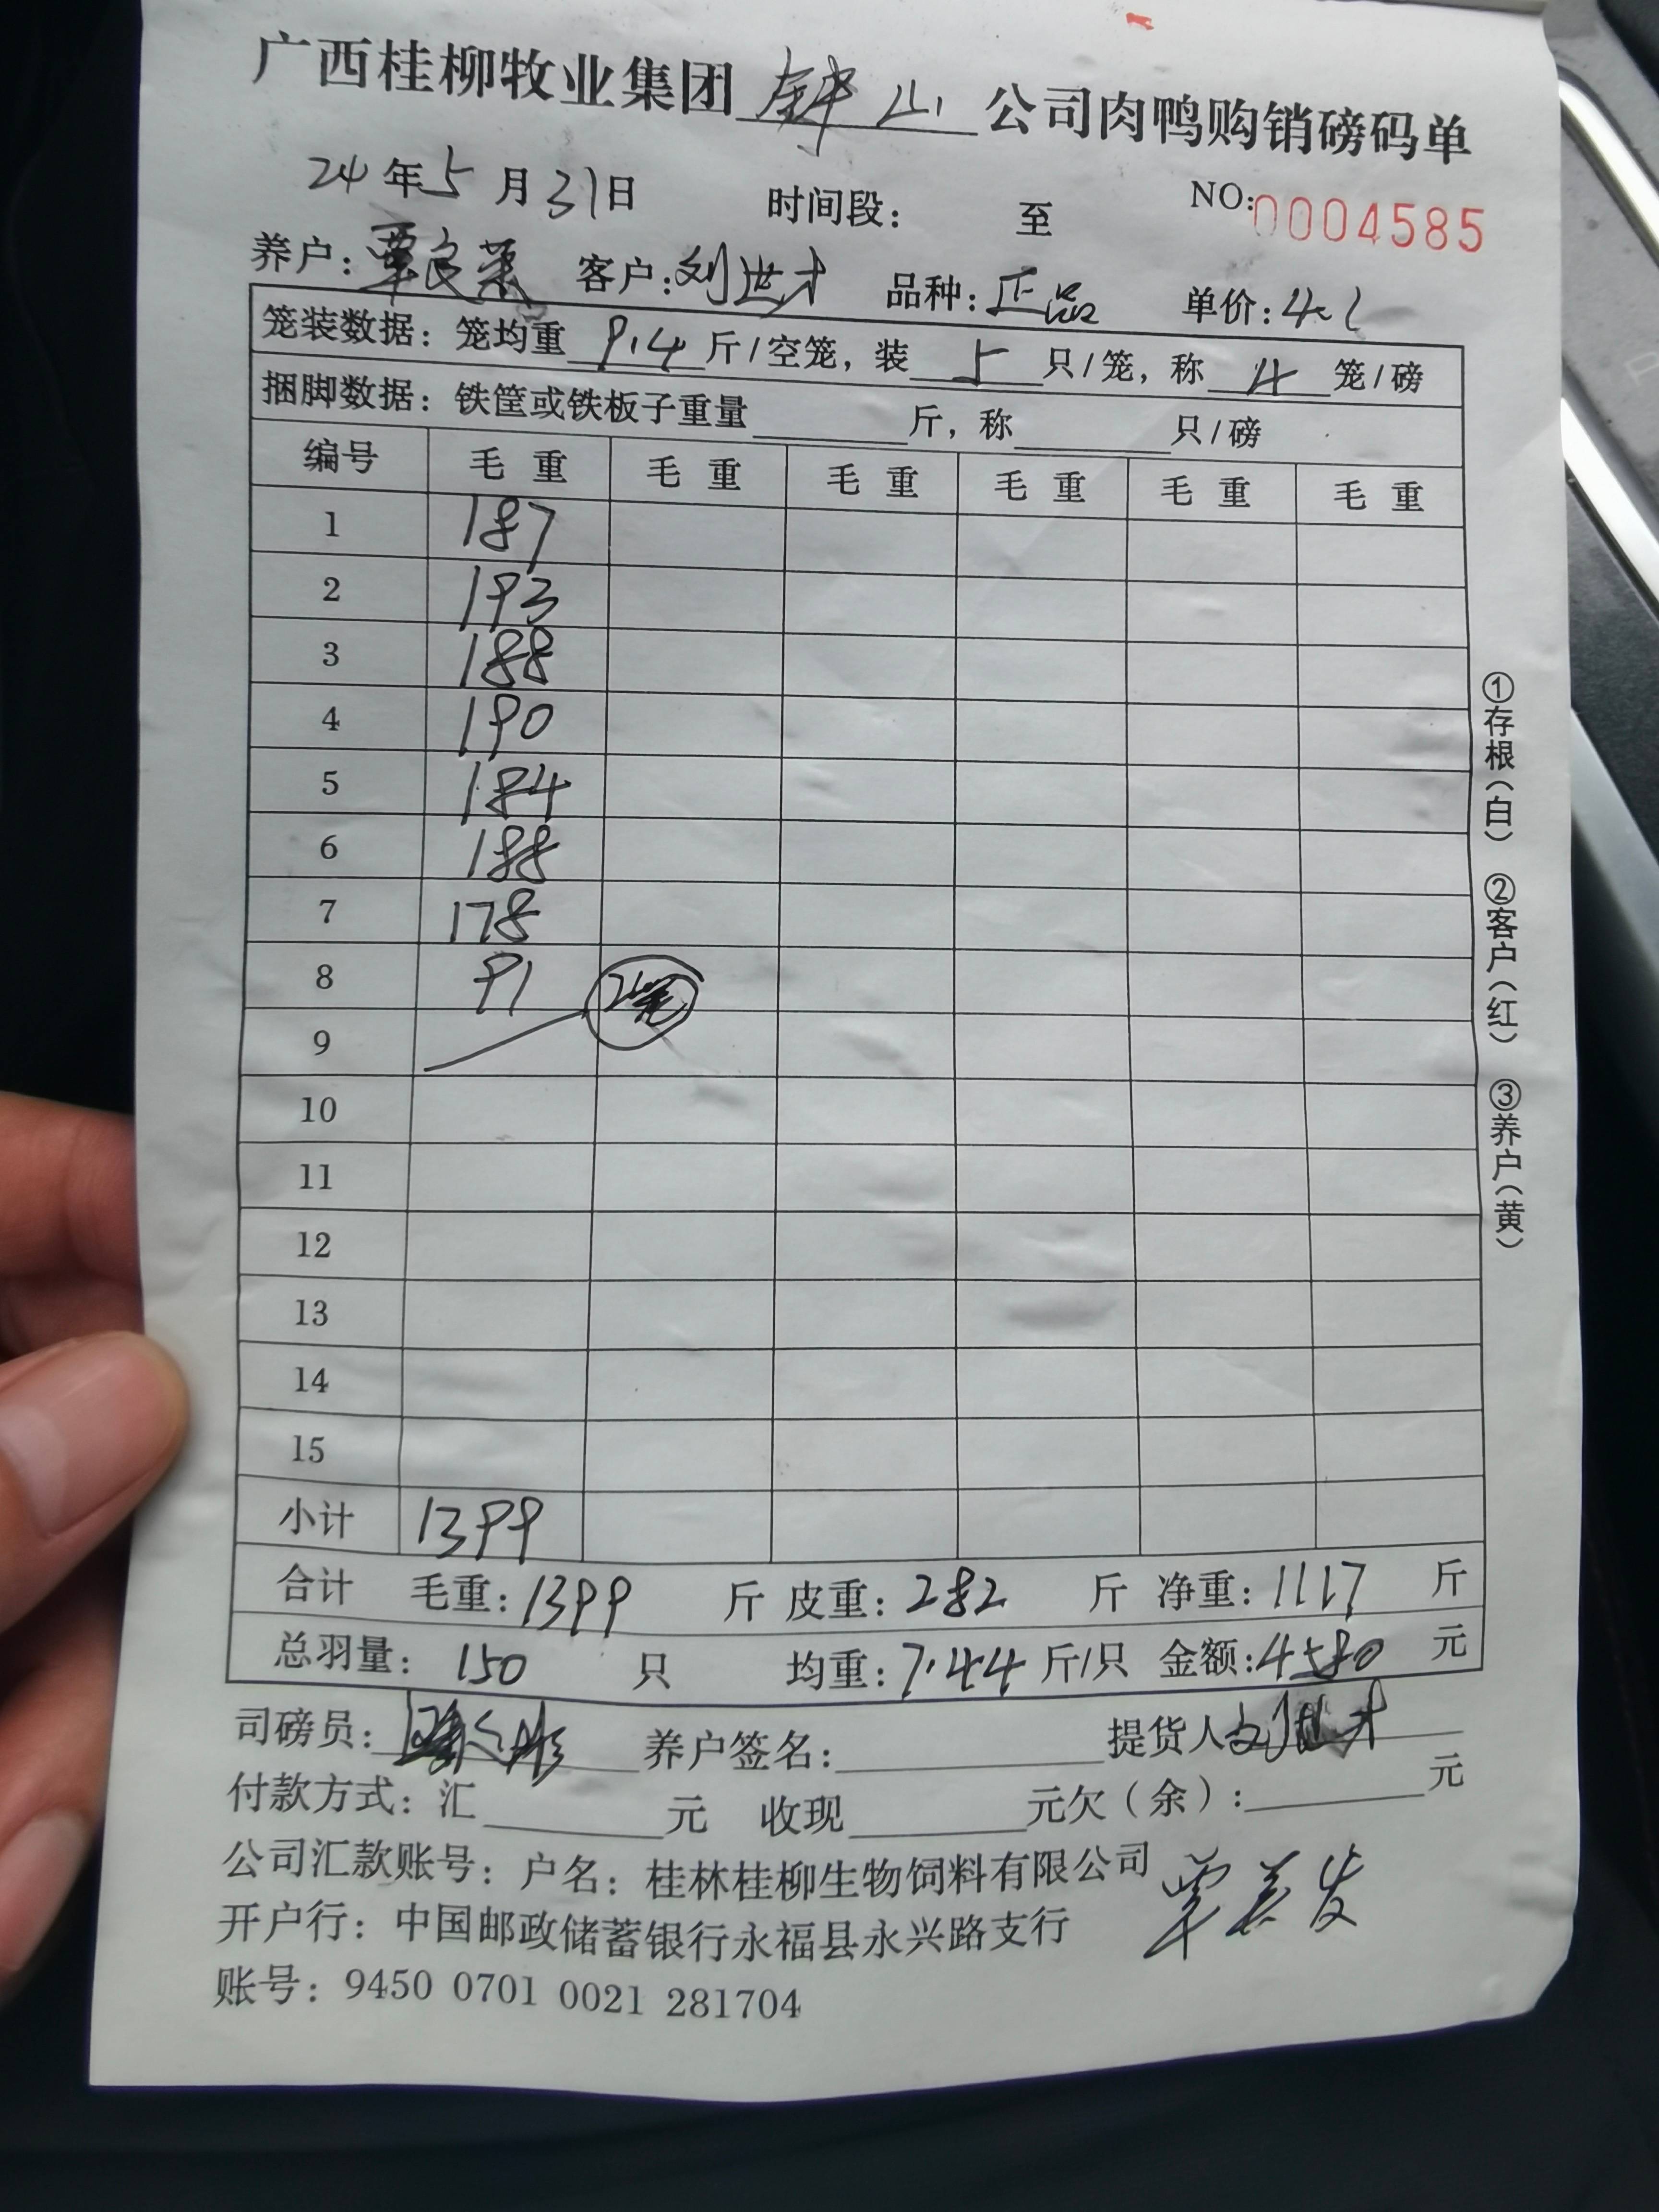 广西桂柳牧业集团 钟山 公司肉鸭购销磅码单
24年5月31日 时间段: 至 NO:0004585
养户:覃良荣 客户:刘世才 品种:正品 单价:4.1
笼装数据:笼均重 9.4 斤/空笼,装 5 只/笼,称 4 笼/磅
捆脚数据:铁筐或铁板子重量 斤,称 只/磅
编号 毛重 毛重 毛重 毛重 毛重 毛重
1 187
2 193
3 188
4 190
5 184
6 188
7 178
8 91 2笼
9
10
11
12
13
14
15
小计 1399
合计 毛重:1399 斤 皮重:282 斤 净重:1117 斤
总羽量:150 只 均重:7.44 斤/只 金额:4580 元
司磅员: 养户签名: 提货人 刘世才
付款方式:汇 元 收现 元欠(余): 元
公司汇款账号:户名:桂林桂柳生物饲料有限公司
开户行:中国邮政储蓄银行永福县永兴路支行
账号:9450 0701 0021 281704
①存根(白) ②客户(红) ③养户(黄)